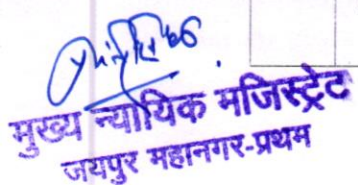 मुख्य न्यायिक मजिस्ट्रेट
जयपुर महानगर-प्रथम